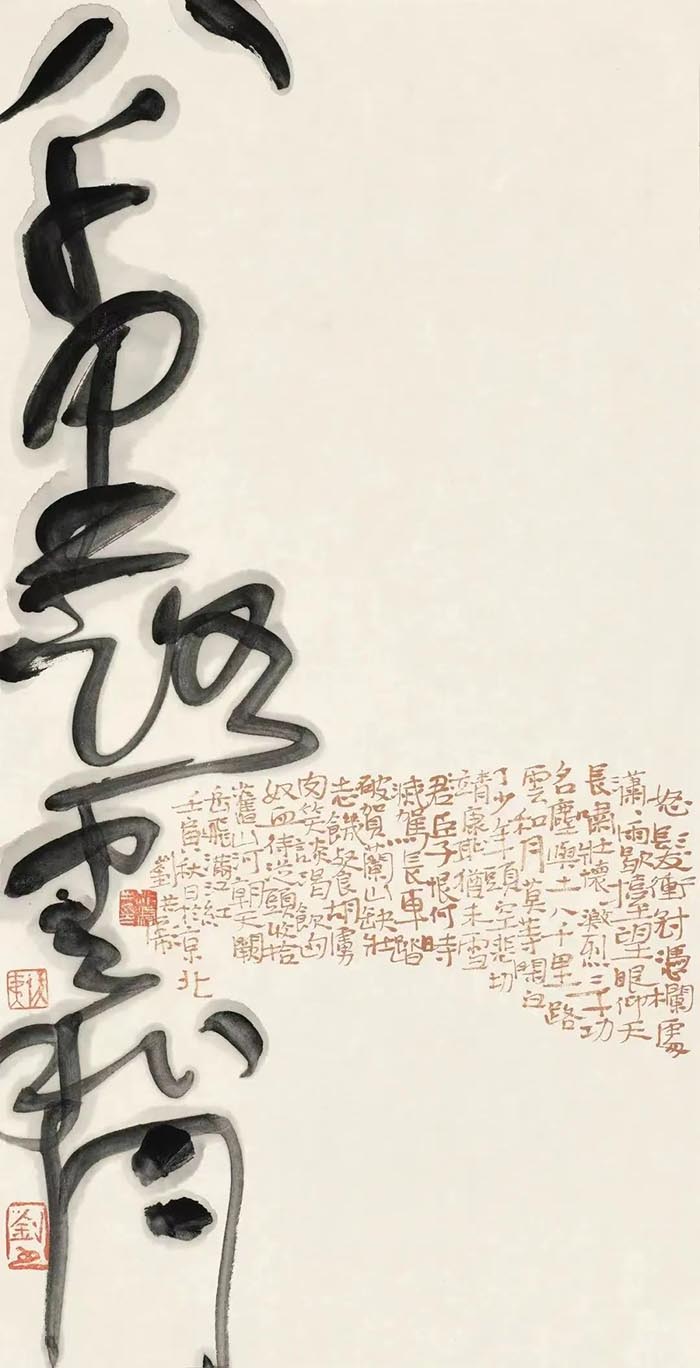 八千里路雲和月
怒髮衝冠憑欄處
瀟、雨歇擡望眼仰天
長嘯壯懷激烈三千功
名塵與土八千里路
雲和月莫等閒白
了少年頭空悲切
靖康恥猶未雪
君臣子恨何時
滅駕長車踏
破賀蘭山缺壯
志饑餐胡虜
肉笑談渴飲匈
奴血待從頭收拾
舊山河朝天闕
岳飛滿江紅
壬寅秋日於京北
劉
劉